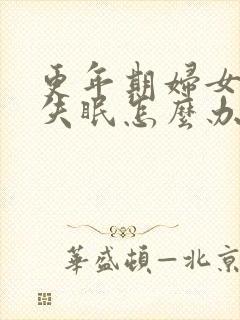 更年期婦女
失眠怎麼办
華盛頓—北京